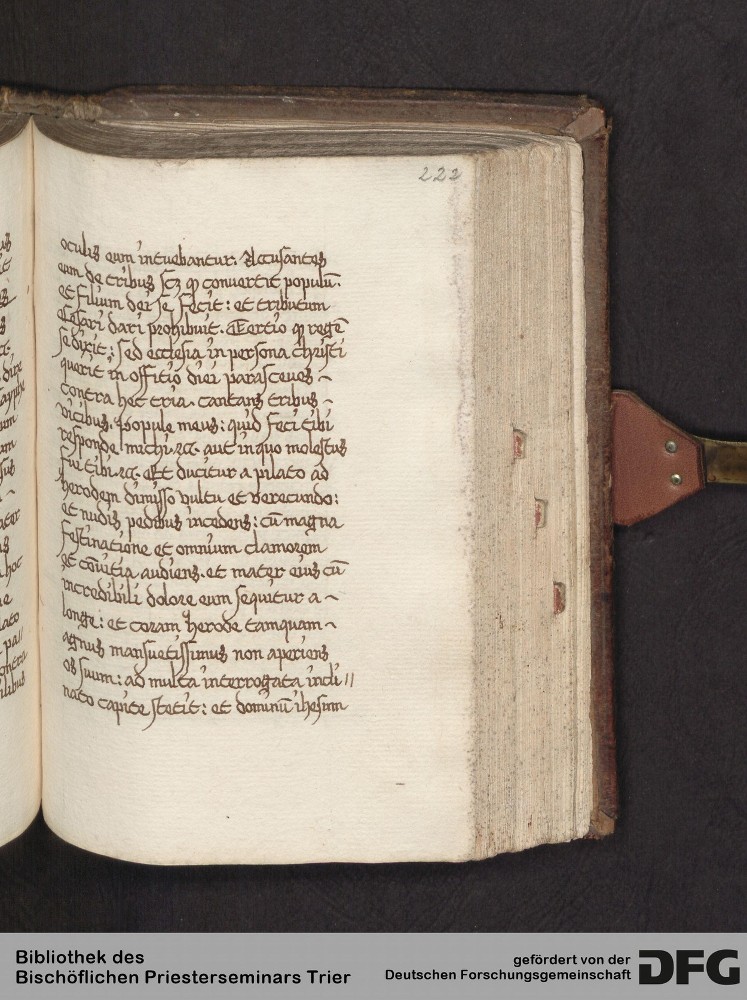 222
oculis eum intuebantur. Accusantes
eum de tribus scꝫ ꝙ convertit populū.
et filium dei se fecit: et tributum
Cesari dari prohibuit. Tertio ꝙ regē
se dixit: sed ecclesia in persona christi
querit in offitio diei parasceues ~
contra hec tria. cantans tribus ~
vicibus. Popule meus: quid feci tibi
responde michi. ⁊c. aut in quo molestus
fui tibi. ⁊c. Et ducitur a pilato ad
herodem dimisso vultu et verecundo:
et nudis pedibus incedens: cū magna
festinatione et omnium clamorem
et cōuitia audiens. et mater eius cū
incredibili dolore eum sequitur a ~
longe: et coram herode tamquam ~
agnus mansuetissimus non aperiens
os suum: ad multa interrogata incli //
nato capite stetit: et dominū ihesum
Bibliothek des
Bischöflichen Priesterseminars Trier
gefördert von der
Deutschen Forschungsgemeinschaft DFG